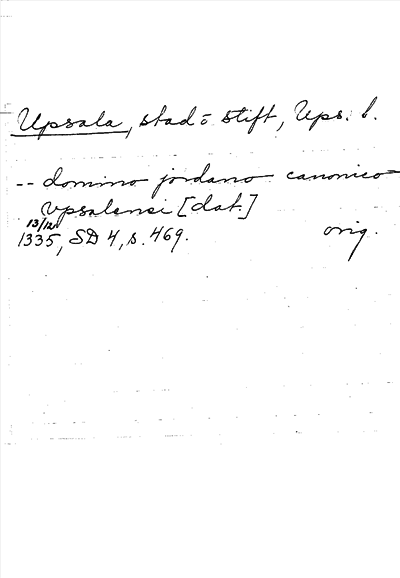 Upsala, stad o. stift, Ups. l.
-- domino jordano canonico
vpsalensi [dat.]
13/12
1335, SD 4, s. 469. orig.